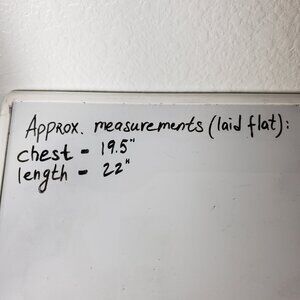 Approx. measurements (laid flat):
chest - 19.5"
length - 22"